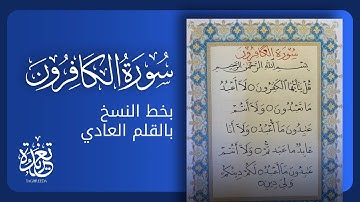 سُورَةُ الْكَافِرُونَ
بخط النسخ
بالقلم العادي
تغريدة
TAGHREEDA
سُورَةُ الْكَافِرُونَ
بِسْمِ اللَّهِ الرَّحْمَنِ الرَّحِيمِ
قُلْ يَا أَيُّهَا الْكَافِرُونَ لَا أَعْبُدُ
مَا تَعْبُدُونَ وَلَا أَنْتُمْ
عَابِدُونَ مَا أَعْبُدُ وَلَا أَنَا
عَابِدٌ مَا عَبَدْتُمْ وَلَا أَنْتُمْ
عَابِدُونَ مَا أَعْبُدُ لَكُمْ دِينُكُمْ
وَلِيَ دِينِ